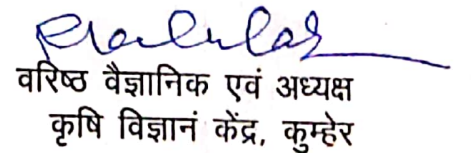 वरिष्ठ वैज्ञानिक एवं अध्यक्ष
कृषि विज्ञानं केंद्र, कुम्हेर